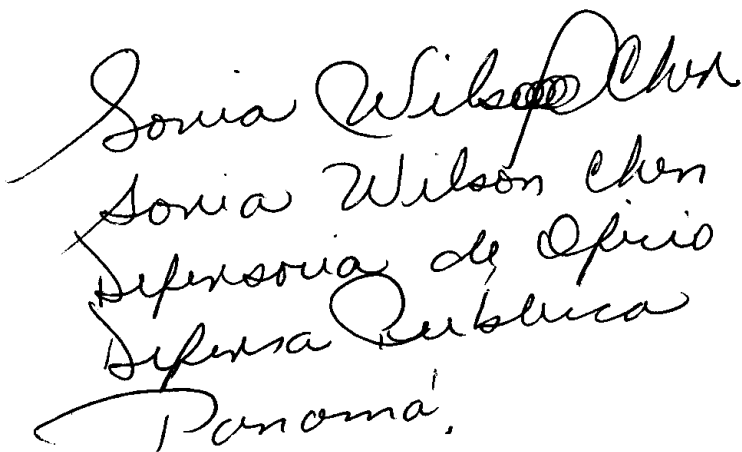 Sonia Wilson Chen
Sonia Wilson Chen
Defensoria de Oficio
Defensa Publica
Panamá.